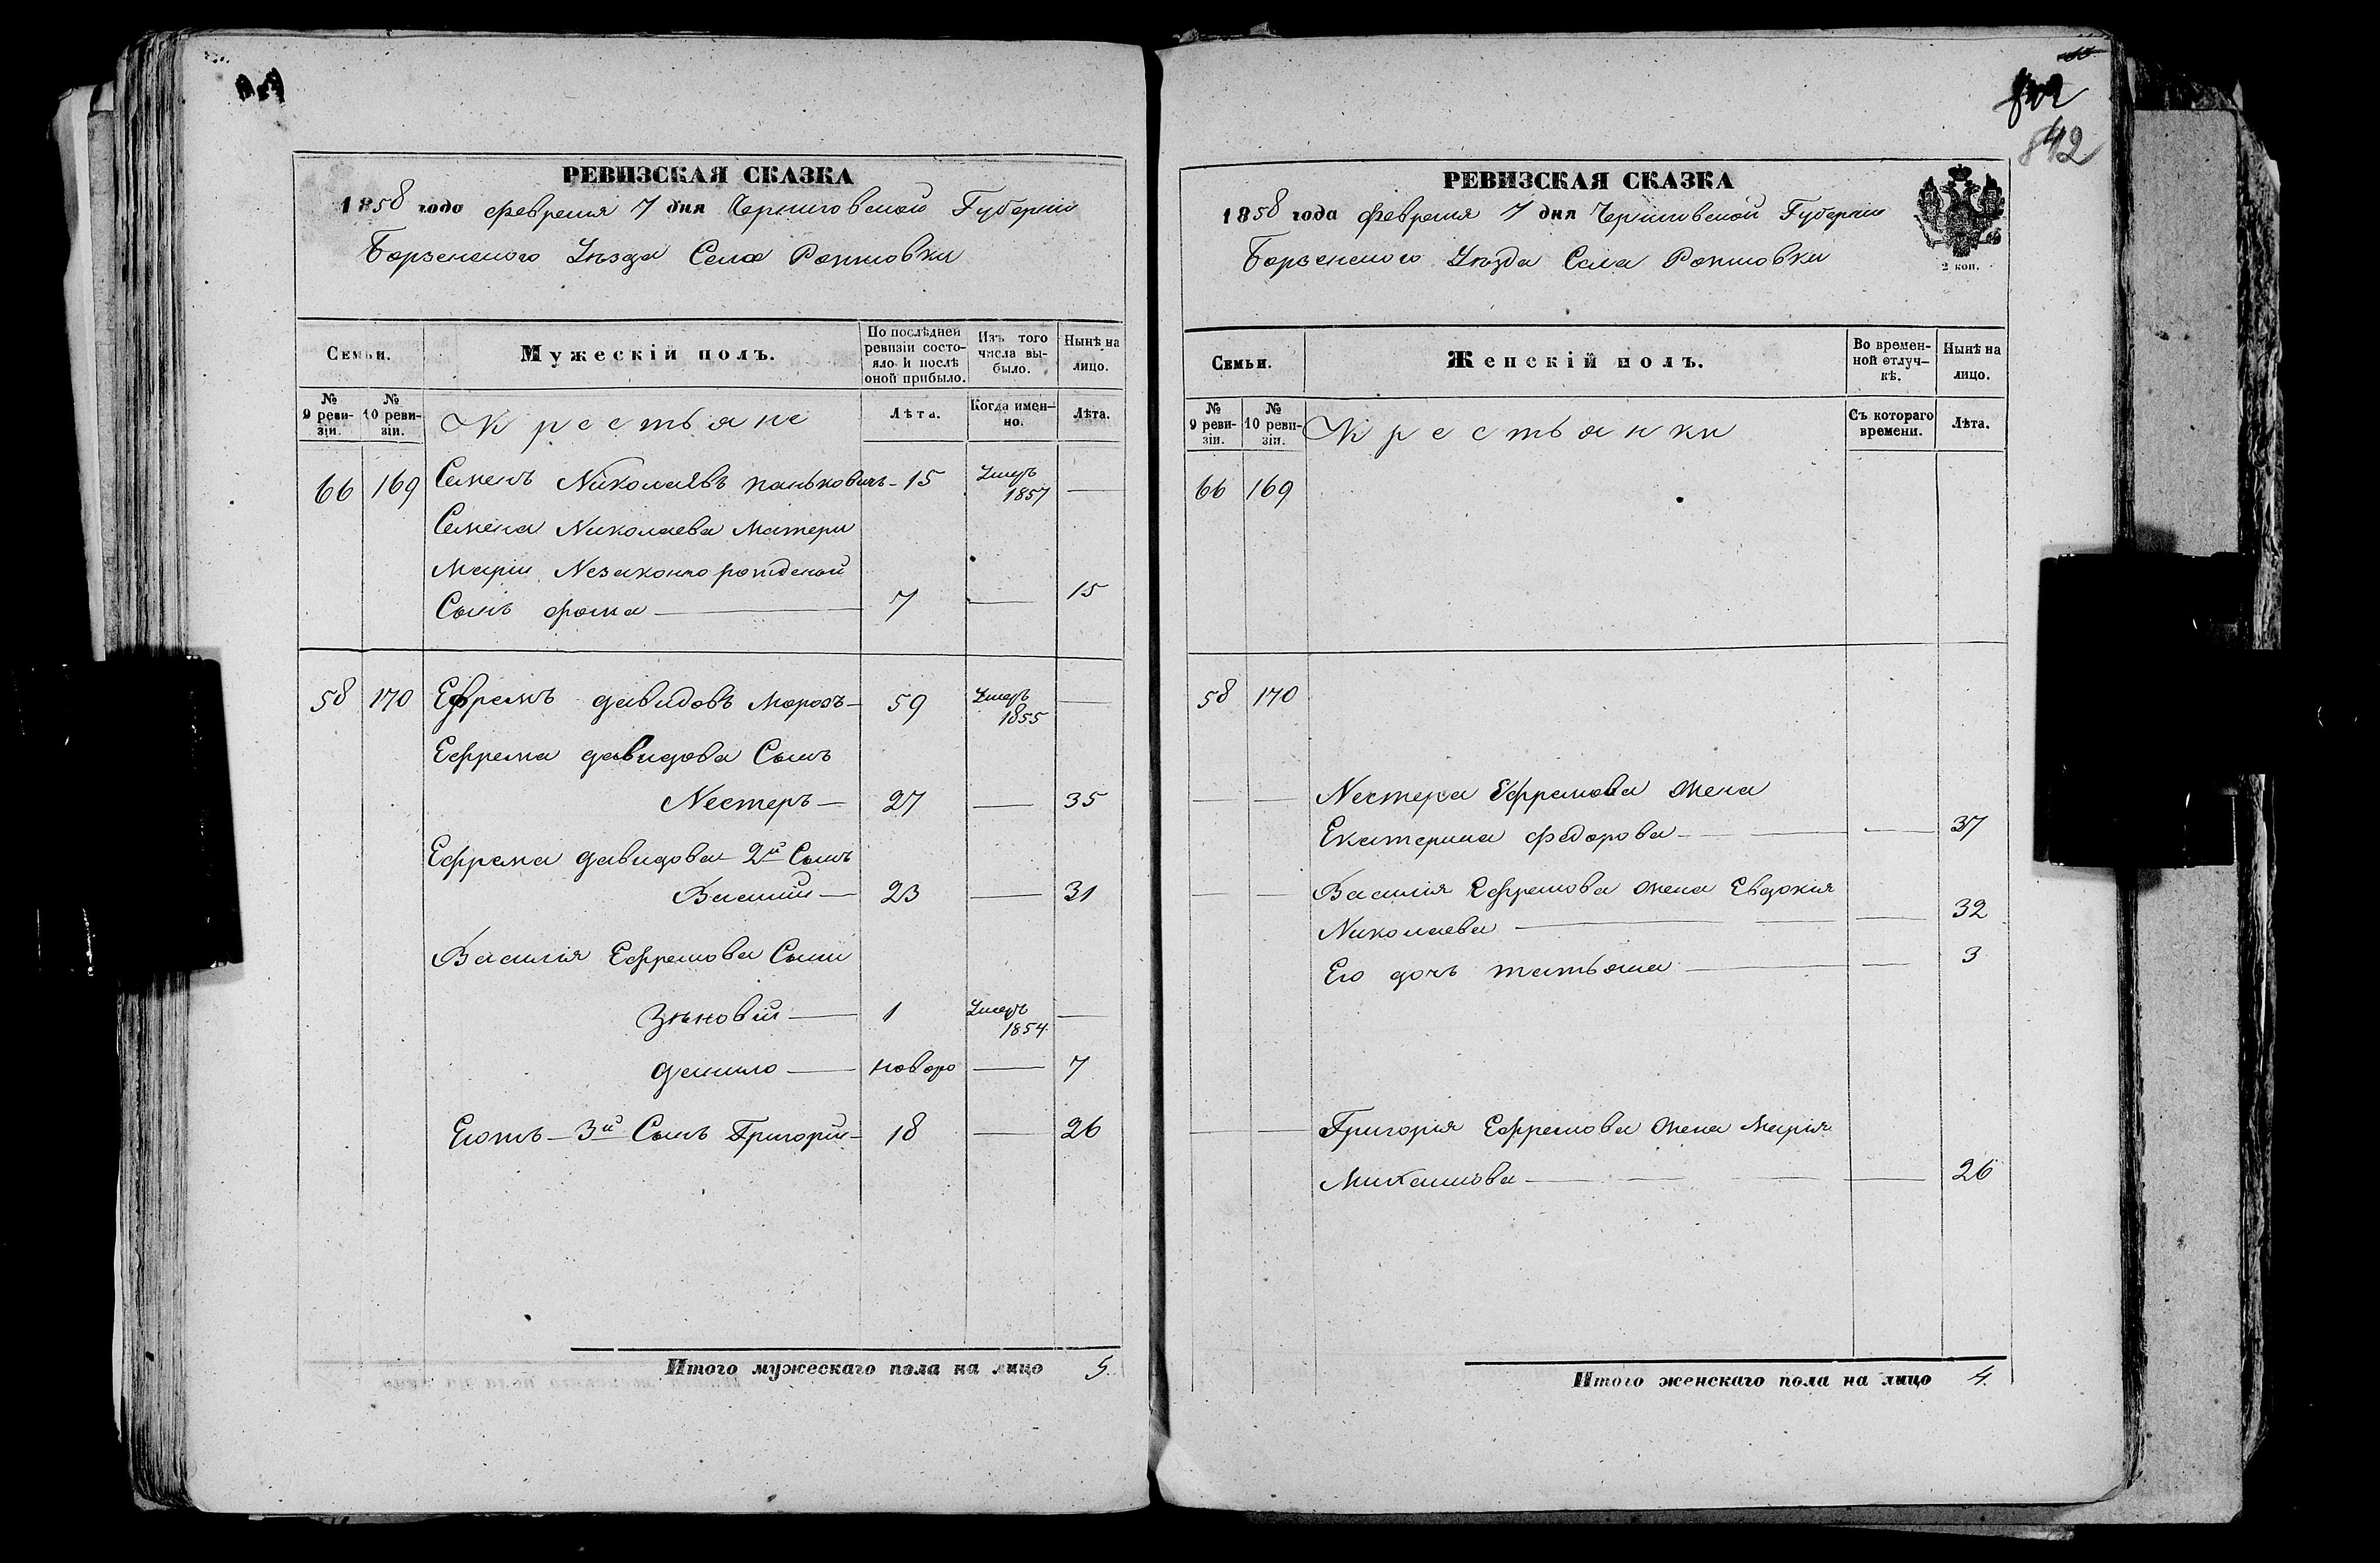 842
РЕВИЗСКАЯ СКАЗКА
1858 года февраля 7 дня Черниговской Губерніи
Борзенского Уѣзда Села
Семьи.
Мужескій полъ.
По послѣдней ревизіи состояло и послѣ оной прибыло.
Изъ того числа выбыло.
Нынѣ на лицо.
№ 9 ревизіи.
№ 10 ревизіи.
Крестьяне
Лѣта.
Когда именно.
Лѣта.
66 169 Семенъ Николаевъ 15 Умеръ 1857 —
Семена Николаева Матери
Маріи Незаконно рожденой
Сынъ фома — 7 — 15
58 170 Ефремъ давидовъ Морозъ — 59 Умеръ 1855 —
Ефрема давидова Сынъ
Нестеръ — 27 — 35
Ефрема давидова 2й Сынъ
Василій — 23 — 31
Василія Ефремова Сыни
Зѣновій — 1 Умеръ 1854 —
данило — новоро — 7
Егожъ — 3й Сынъ Григорій — 18 — 26
Итого мужескаго пола на лицо 5.
РЕВИЗСКАЯ СКАЗКА
1858 года февраля 7 дня Черниговской Губерніи
Борзенского Уѣзда Села
2 коп.
Семьи.
Женскій полъ.
Во временной отлучкѣ.
Нынѣ на лицо.
№ 9 ревизіи.
№ 10 ревизіи.
Крестьянки
Съ котораго времени.
Лѣта.
66 169
58 170
— — Нестера Ефремова жена
Екатерина федорова — — 37
— — Василія Ефремова жена Евдокія
Николаева — — 32
Его дочь татьяна — — 3
— — Григорія Ефремова жена Марія
Михаилова — — 26
Итого женскаго пола на лицо 4.